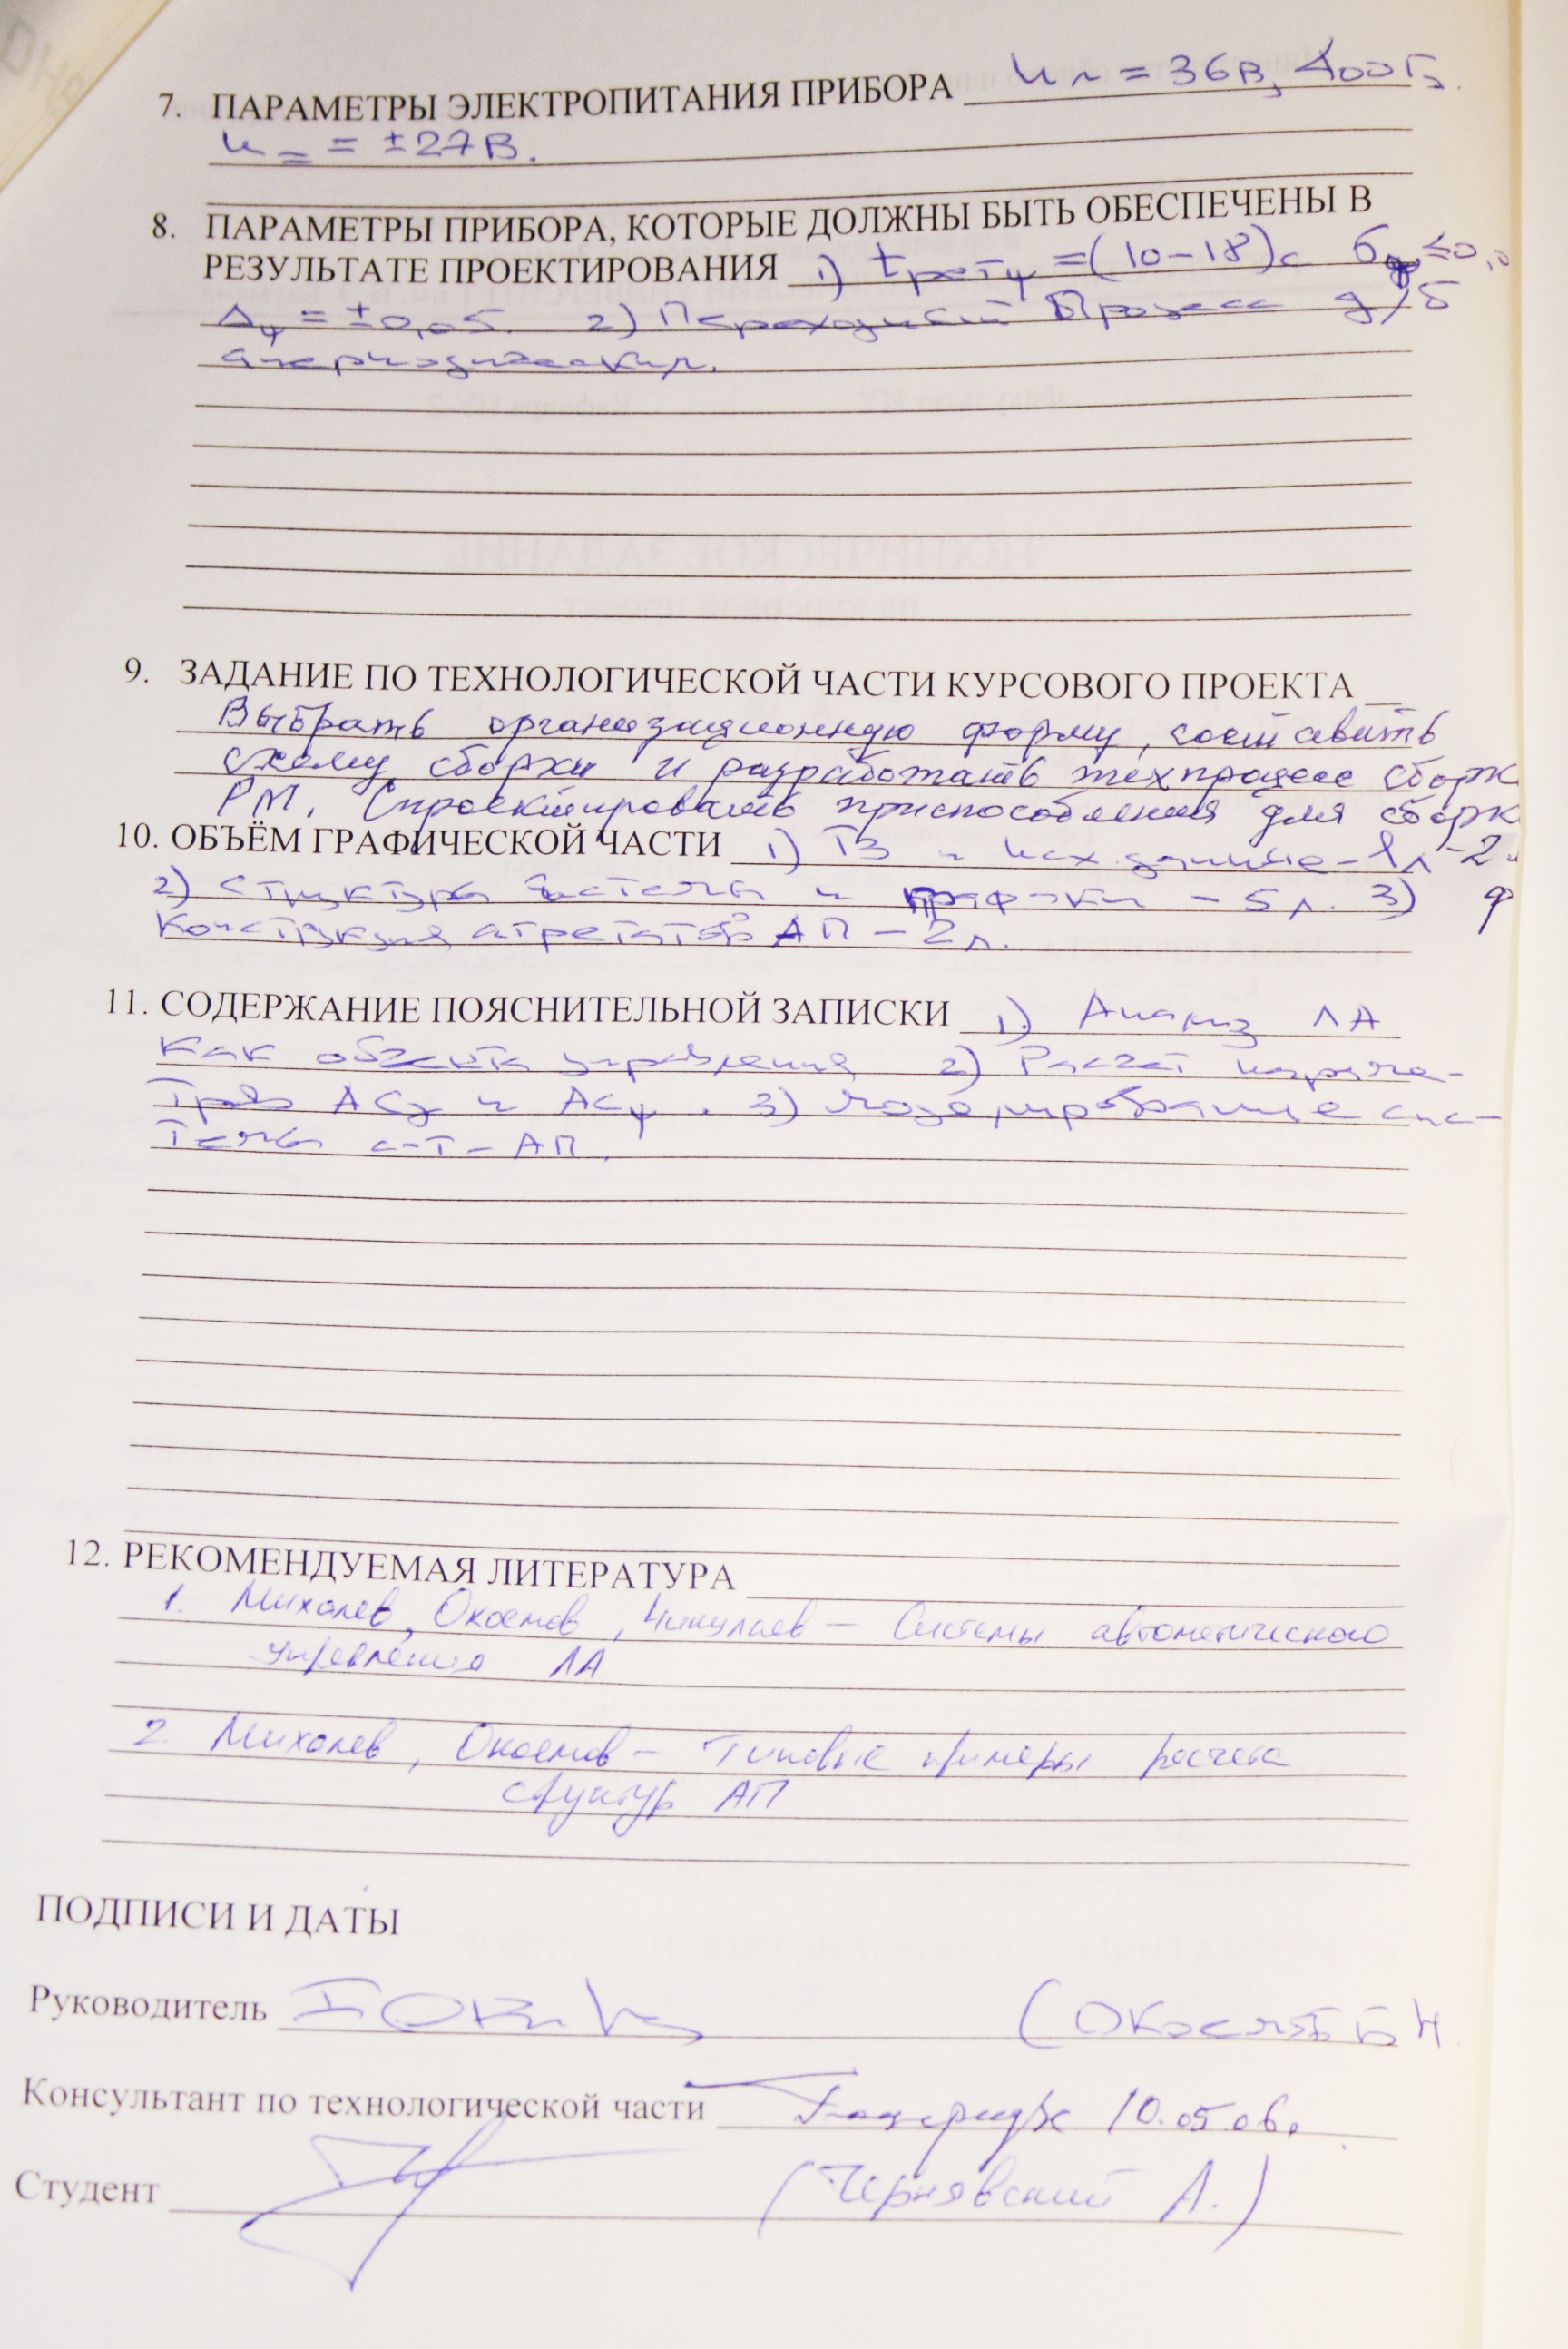 7. ПАРАМЕТРЫ ЭЛЕКТРОПИТАНИЯ ПРИБОРА U~ = 36В, 400Гц
U= = ±27В.
8. ПАРАМЕТРЫ ПРИБОРА, КОТОРЫЕ ДОЛЖНЫ БЫТЬ ОБЕСПЕЧЕНЫ В
РЕЗУЛЬТАТЕ ПРОЕКТИРОВАНИЯ 1) t рег ψ = (10-18)с б ≤0,0
Δψ = ±0,05. 2) Переходный процесс д/б
апериодическим.
9. ЗАДАНИЕ ПО ТЕХНОЛОГИЧЕСКОЙ ЧАСТИ КУРСОВОГО ПРОЕКТА
Выбрать организационную форму, составить
схему сборки и разработать техпроцесс сборк
РМ. Спроектировать приспособления для сборк
10. ОБЪЁМ ГРАФИЧЕСКОЙ ЧАСТИ 1) ТЗ и исх. данные - 1л-2
2) Структура системы и графики - 5 л. 3)
Конструкция агрегатов АП - 2 л.
11. СОДЕРЖАНИЕ ПОЯСНИТЕЛЬНОЙ ЗАПИСКИ 1) Анализ ЛА
как объекта управления 2) Расчет параме-
тров АСγ и АСψ. 3) Моделирование сис-
темы с-т - АП.
12. РЕКОМЕНДУЕМАЯ ЛИТЕРАТУРА
1. Михалев, Окоемов, Чикулаев - Системы автоматического
управления ЛА
2. Михалев, Окоемов - Типовые примеры расчета
структур АП
ПОДПИСИ И ДАТЫ
Руководитель (Окоемов Б Н
Консультант по технологической части 10.05.06.
Студент (Чернявский А.)